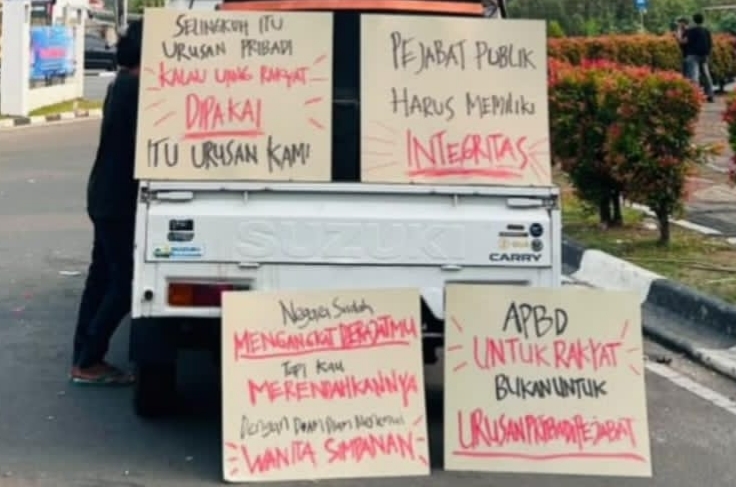 SELINGKUH ITU
URUSAN PRIBADI
KALAU UANG RAKYAT
DIPAKAI
ITU URUSAN KAMI
PEJABAT PUBLIK
HARUS MEMILIKI
INTEGRITAS
SUZUKI
SUZUKI
CARRY
Negara Sudah
MENGANGKAT DERAJATMU
Tapi Kau
MERENDAHKANNYA
Dengan Diam Diam
WANITA SIMPANAN
APBD
UNTUK RAKYAT
BUKAN UNTUK
URUSAN PRIBADI PEJABAT